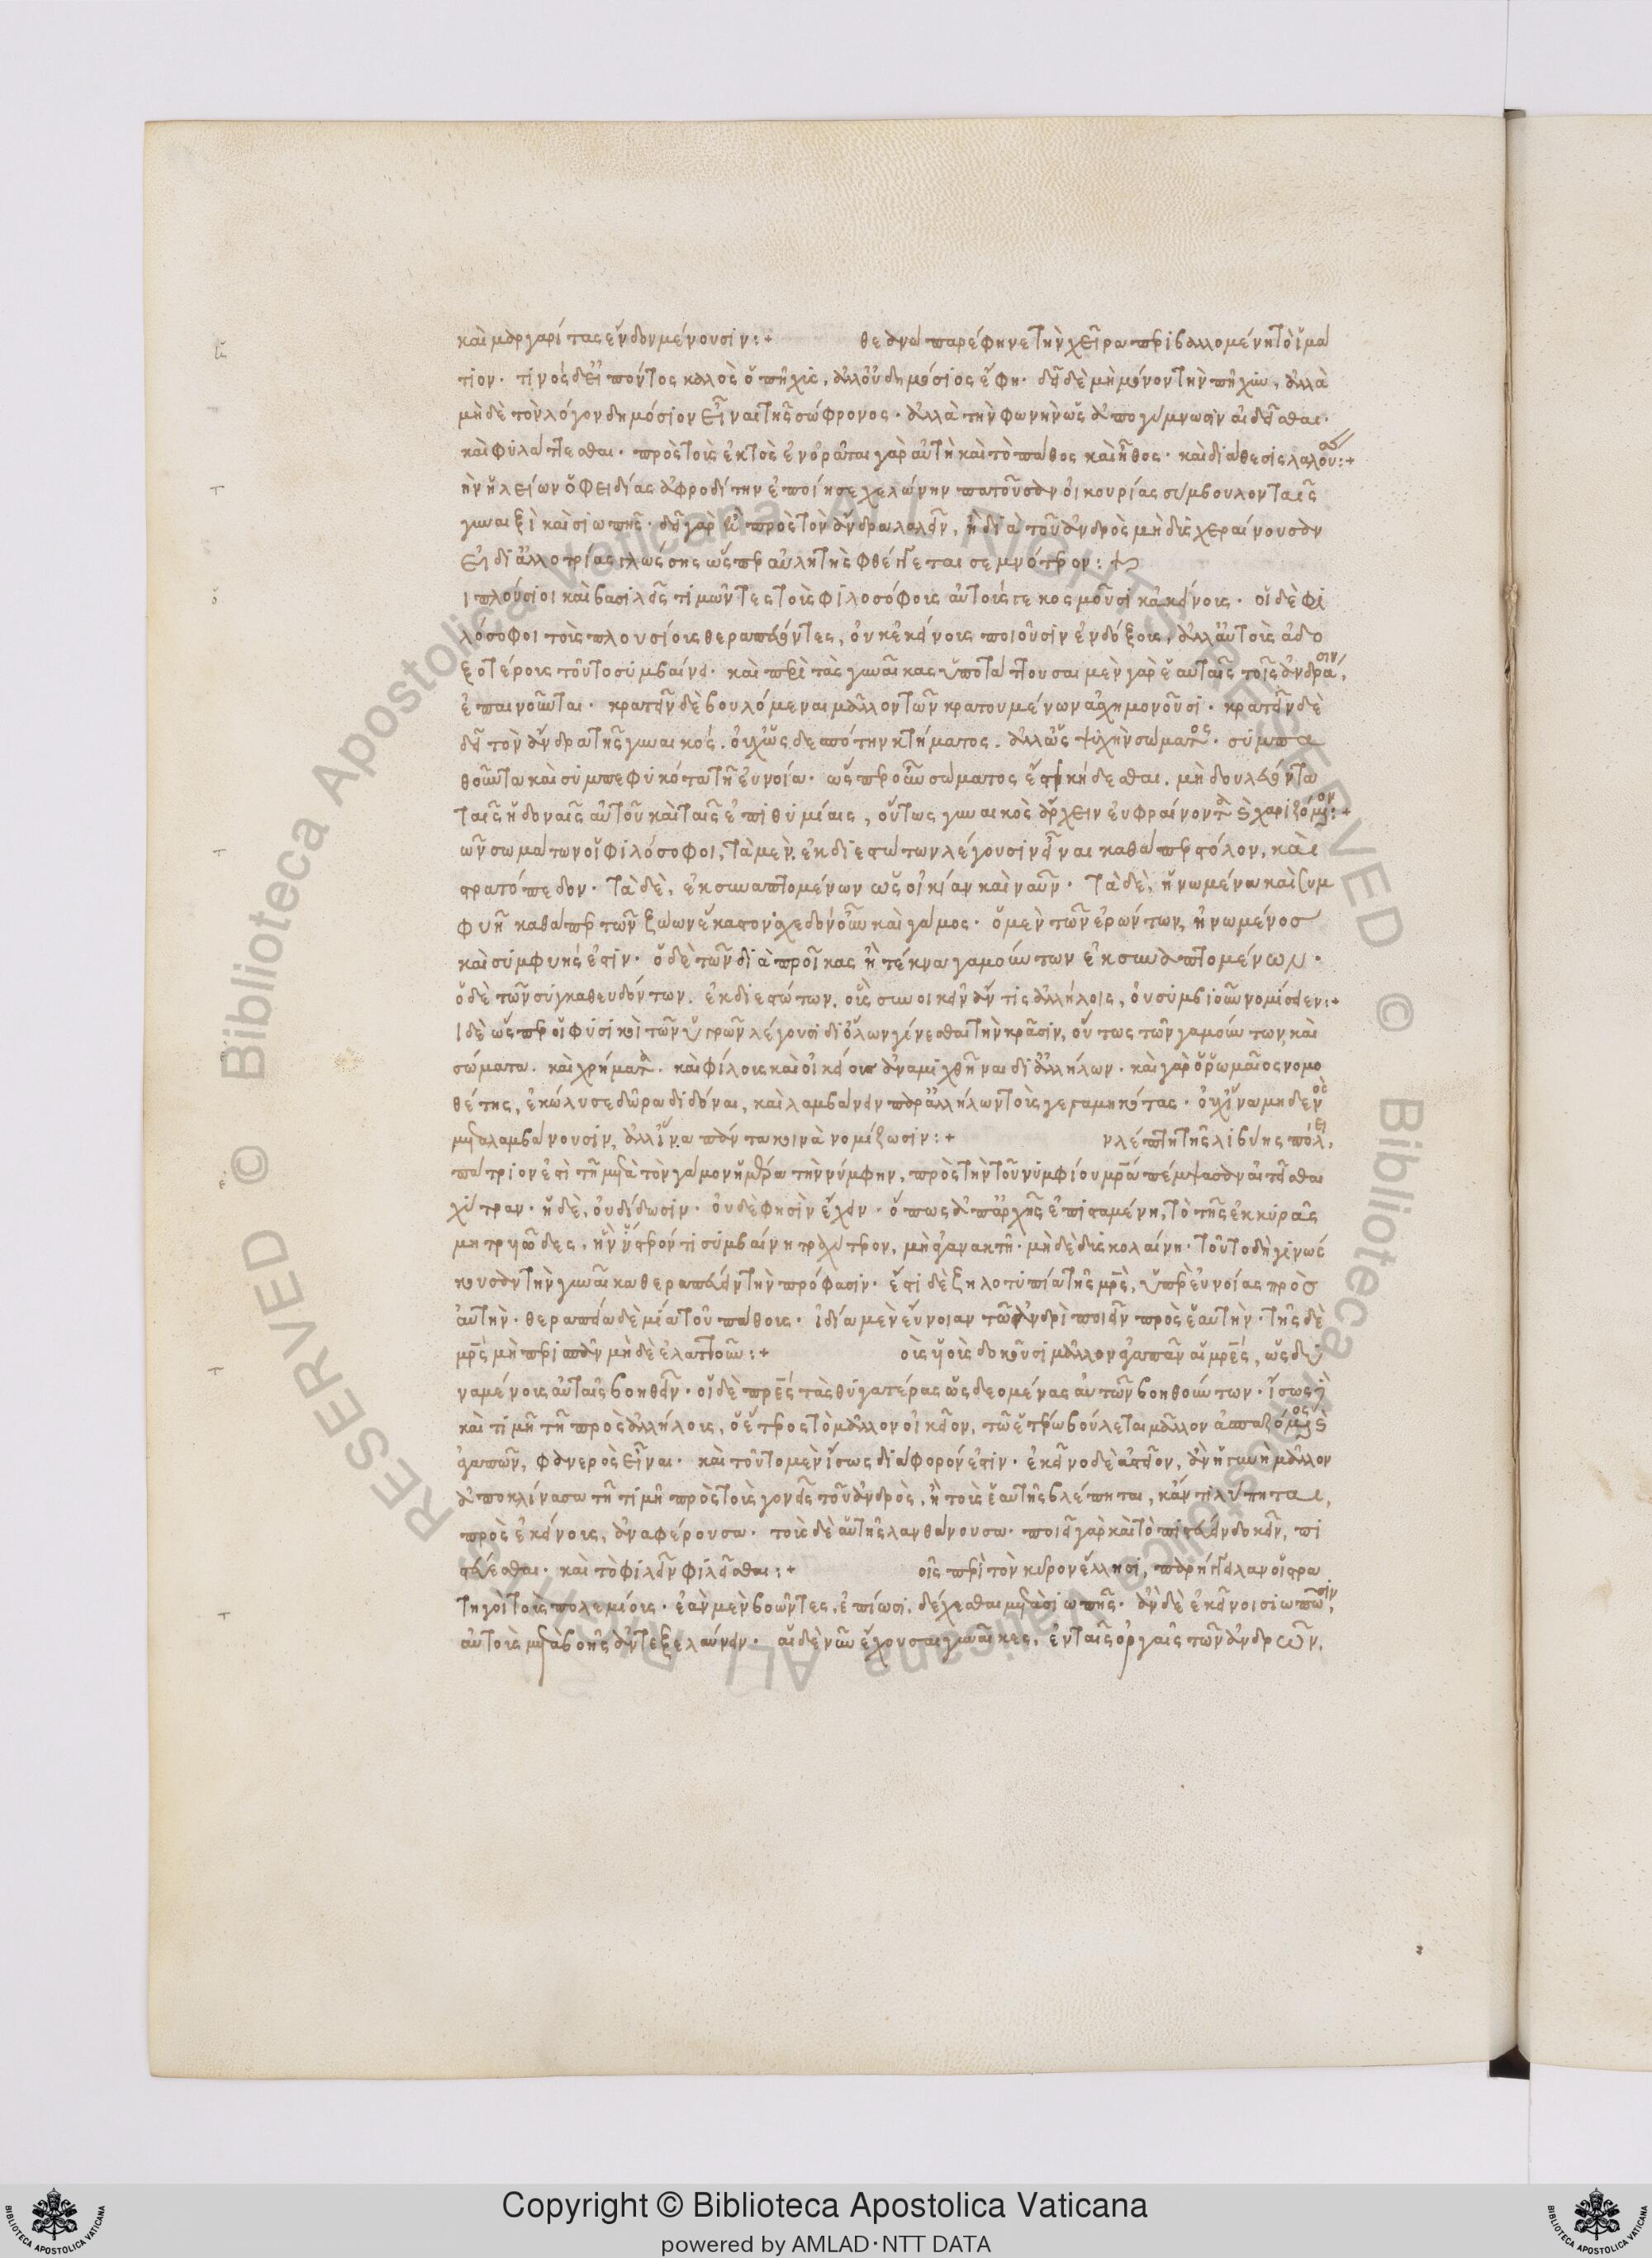 καὶ μαργαρίτας ἔνδον μένουσιν :+ θεανὼ παρέφηνε τὴν χεῖρα περιβαλλομένη τὸ ἱμά
τιον. τινὸς δ' εἰπόντος καλὸς ὁ πῆχις, ἀλλ' οὐ δημόσιος ἔφη. δεῖ δὲ μὴ μόνον τὴν πῆχυν, ἀλλὰ
μὴ δὲ τὸν λόγον δημόσιον εἶναι τῆς σώφρονος. ἀλλὰ τὴν φωνὴν ὡς ἀπογύμνωσιν αἰδεῖσθαι.
καὶ φυλάττεσθαι. πρὸς τοὺς ἐκτὸς ἐνορᾶται γὰρ αὐτῆ καὶ τὸ πάθος καὶ ἦθος. καὶ διάθεσις λαλού:+
ὴν ἠλείων ὁ φειδίας ἀφροδίτην ἐποίησε χελώνην πατοῦσαν οἰκουρίας σύμβουλον ταῖς
γυναιξὶ καὶ σιωπῆς. δεῖ γὰρ ἢ πρὸς τὸν ἄνδρα λαλεῖν, ἢ διὰ τοῦ ἀνδρὸς μὴ δυσχεραίνουσαν
εἰ δι' ἀλλοτρίας γλώσσης ὥσπερ αὐλητὴς φθέγγεται σεμνότερον :+
ι πλούσιοι καὶ βασιλεῖς τιμῶντες τοὺς φιλοσόφους αὐτούς τε κοσμοῦσι κἀκείνους. οἱ δὲ φι
λόσοφοι τοὺς πλουσίους θεραπεύοντες, οὐκ ἐκείνους ποιοῦσιν ἐνδόξους, ἀλλ' αὑτοὺς ἀδο
ξοτέρους τοῦτο συμβαίνει. καὶ περὶ τὰς γυναῖκας ὑποτάττουσαι μὲν γὰρ ἑαυτὰς τοῖς ἀνδράσιν,
ἐπαινοῦνται. κρατεῖν δὲ βουλόμεναι μᾶλλον τῶν κρατουμένων ἀσχημονοῦσι. κρατεῖν δὲ
δεῖ τὸν ἄνδρα τῆς γυναικός. οὐχ ὡς δεσπότην κτήματος. ἀλλ' ὡς ψυχὴν σώματος. συμπα
θοῦντα καὶ συμπεφυκότα τῆ εὐνοία. ὥσπερ οὖν σώματος ἔστι κήδεσθαι. μὴ δουλεύοντα
ταῖς ἡδοναῖς αὐτοῦ καὶ ταῖς ἐπιθυμίαις, οὕτως γυναικὸς ἄρχειν εὐφραίνοντα καὶ χαριζόμενον:+
ῶν σωμάτων οἱ φιλόσοφοι, τὰ μὲν ἐκ διεστώτων λέγουσιν εἶναι καθάπερ στόλον, καὶ
στρατόπεδον. τὰ δὲ, ἐκ συναπτομένων ὡς οἰκίαν καὶ ναῦν. τὰ δὲ, ἡνωμένα καὶ συμ
φυῆ καθάπερ τῶν ζώων ἕκαστον σχεδὸν οὖν καὶ γάμος. ὁ μὲν τῶν ἐρώντων, ἡνωμένος
καὶ συμφυής ἐστιν. ὁ δὲ τῶν διὰ προῖκας ἢ τέκνα γαμούντων ἐκ συναπτομένων.
ὁ δὲ τῶν συγκαθευδόντων. ἐκ διεστώτων. οὓς συνοικεῖν ἄν τις ἀλλήλοις, οὐ συμβιοῦν νομίσειεν:+
ι δὲ ὥσπερ οἱ φυσικοὶ τῶν ὑγρῶν λέγουσι δι' ὅλων γίνεσθαι τὴν κρᾶσιν, οὕτως τῶν γαμούντων, καὶ
σώματα. καὶ χρήματα. καὶ φίλους καὶ οἰκείους ἀναμιχθῆναι δι' ἀλλήλων. καὶ γὰρ ὁ ῥωμαῖος νομο
θέτης, ἐκώλυσε δῶρα διδόναι, καὶ λαμβάνειν παρ' ἀλλήλων τοὺς γεγαμηκότας. οὐχ ἵνα μηδενὸς
μεταλαμβάνουσιν, ἀλλ' ἵνα πάντα κοινὰ νομίζωσιν :+ ν λέπτη τῆς λιβύης πόλει,
πάτριον ἐστὶ τῆ μετὰ τὸν γάμον ἡμέρα τὴν νύμφην, πρὸς τὴν τοῦ νυμφίου μρα πέμψασαν αἰτεῖσθαι
χύτραν. ἡ δὲ, οὐ δίδωσιν. οὐδέ φησιν ἔχειν. ὅπως ἀπ' ἀρχῆς ἐπισταμένη, τὸ τῆς ἑκυρᾶς
μητρυῶδες, ἂν ὕστερόν τι συμβαίνη τραχύτερον, μὴ ἀγανακτῆ. μὴ δὲ δυσκολαίνη. τοῦτο δεῖ γινώς
κουσαν τὴν γυναῖκα θεραπεύειν τὴν πρόφασιν. ἔστι δὲ ζηλοτυπία τῆς μρς, ὑπὲρ εὐνοίας πρὸς
αὐτήν. θεραπεία δὲ μία τοῦ πάθους. ἰδία μὲν εὔνοιαν τῶ ἀνδρὶ ποιεῖν πρὸς ἑαυτήν. τῆς δὲ
μρς μὴ περισπᾶν μὴ δὲ ἐλαττοῦν :+ οὺς υἱοὺς δοκοῦσι μᾶλλον ἀγαπᾶν αἱ μρες, ὡς δυ
ναμένους αὐταῖς βοηθεῖν. οἱ δὲ πρες τὰς θυγατέρας ὡς δεομένας αὐτῶν βοηθούντων. ἴσως δὲ
καὶ τιμῆ τῆ πρὸς ἀλλήλους, ὁ ἕτερος τὸ μᾶλλον οἰκεῖον, τῶ ἑτέρω βούλεται μᾶλλον ἀσπαζόμενος καὶ
ἀγαπῶν, φανερὸς εἶναι. καὶ τοῦτο μὲν ἴσως διάφορόν ἐστιν. ἐκεῖνο δὲ ἀστεῖον, ἂν ἡ γυνὴ μᾶλλον
ἀποκλίνασα τῆ τιμῆ πρὸς τοὺς γονεῖς τοῦ ἀνδρὸς, ἢ τοὺς ἑαυτῆς βλέπηται, κἄν τι λυπῆται,
πρὸς ἐκείνους, ἀναφέρουσα. τοὺς δὲ αὑτῆς λανθάνουσα. ποιεῖ γὰρ καὶ τὸ πιστεύειν δοκεῖν, πι
στεύεσθαι. καὶ τὸ φιλεῖν φιλεῖσθαι :+ οῖς περὶ τὸν κύρον ἕλλησι, παρήγγειλαν οἱ στρα
τηγοὶ τοὺς πολεμίους. ἐὰν μὲν βοῶντες, ἐπίωσι, δέχεσθαι μετὰ σιωπῆς. ἂν δὲ ἐκεῖνοι σιωπῶσιν,
αὐτοὺς μετὰ βοῆς ἀντεξελαύνειν. αἱ δὲ νοῦν ἔχουσαι γυναῖκες, ἐν ταῖς ὀργαῖς τῶν ἀνδρῶν,
Copyright © Biblioteca Apostolica Vaticana
powered by AMLAD·NTT DATA